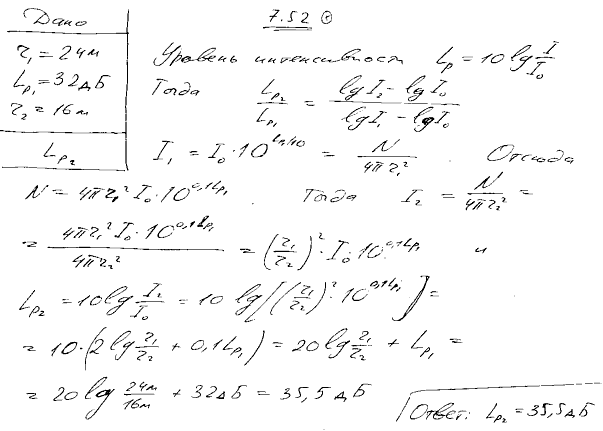 Дано
7.52
r₁ = 24м
Lp₁ = 32дБ
r₂ = 16м
Lp₂
Уровень интенсивности Lp = 10 lg I/I₀
Тогда Lp₂/Lp₁ = (lg I₂ - lg I₀)/(lg I₁ - lg I₀)
I₁ = I₀·10^(Lp₁/10) = N/(4πr₁²). Отсюда
N = 4πr₁² I₀·10^(0,1Lp₁). Тогда I₂ = N/(4πr₂²) =
= (4πr₁² I₀·10^(0,1Lp₁))/(4πr₂²) = (r₁/r₂)²·I₀·10^(0,1Lp₁) и
Lp₂ = 10 lg I₂/I₀ = 10 lg[(r₁/r₂)²·10^(0,1Lp₁)] =
= 10·(2 lg r₁/r₂ + 0,1Lp₁) = 20 lg r₁/r₂ + Lp₁ =
= 20 lg 24м/16м + 32дБ = 35,5 дБ
Ответ: Lp₂ = 35,5дБ